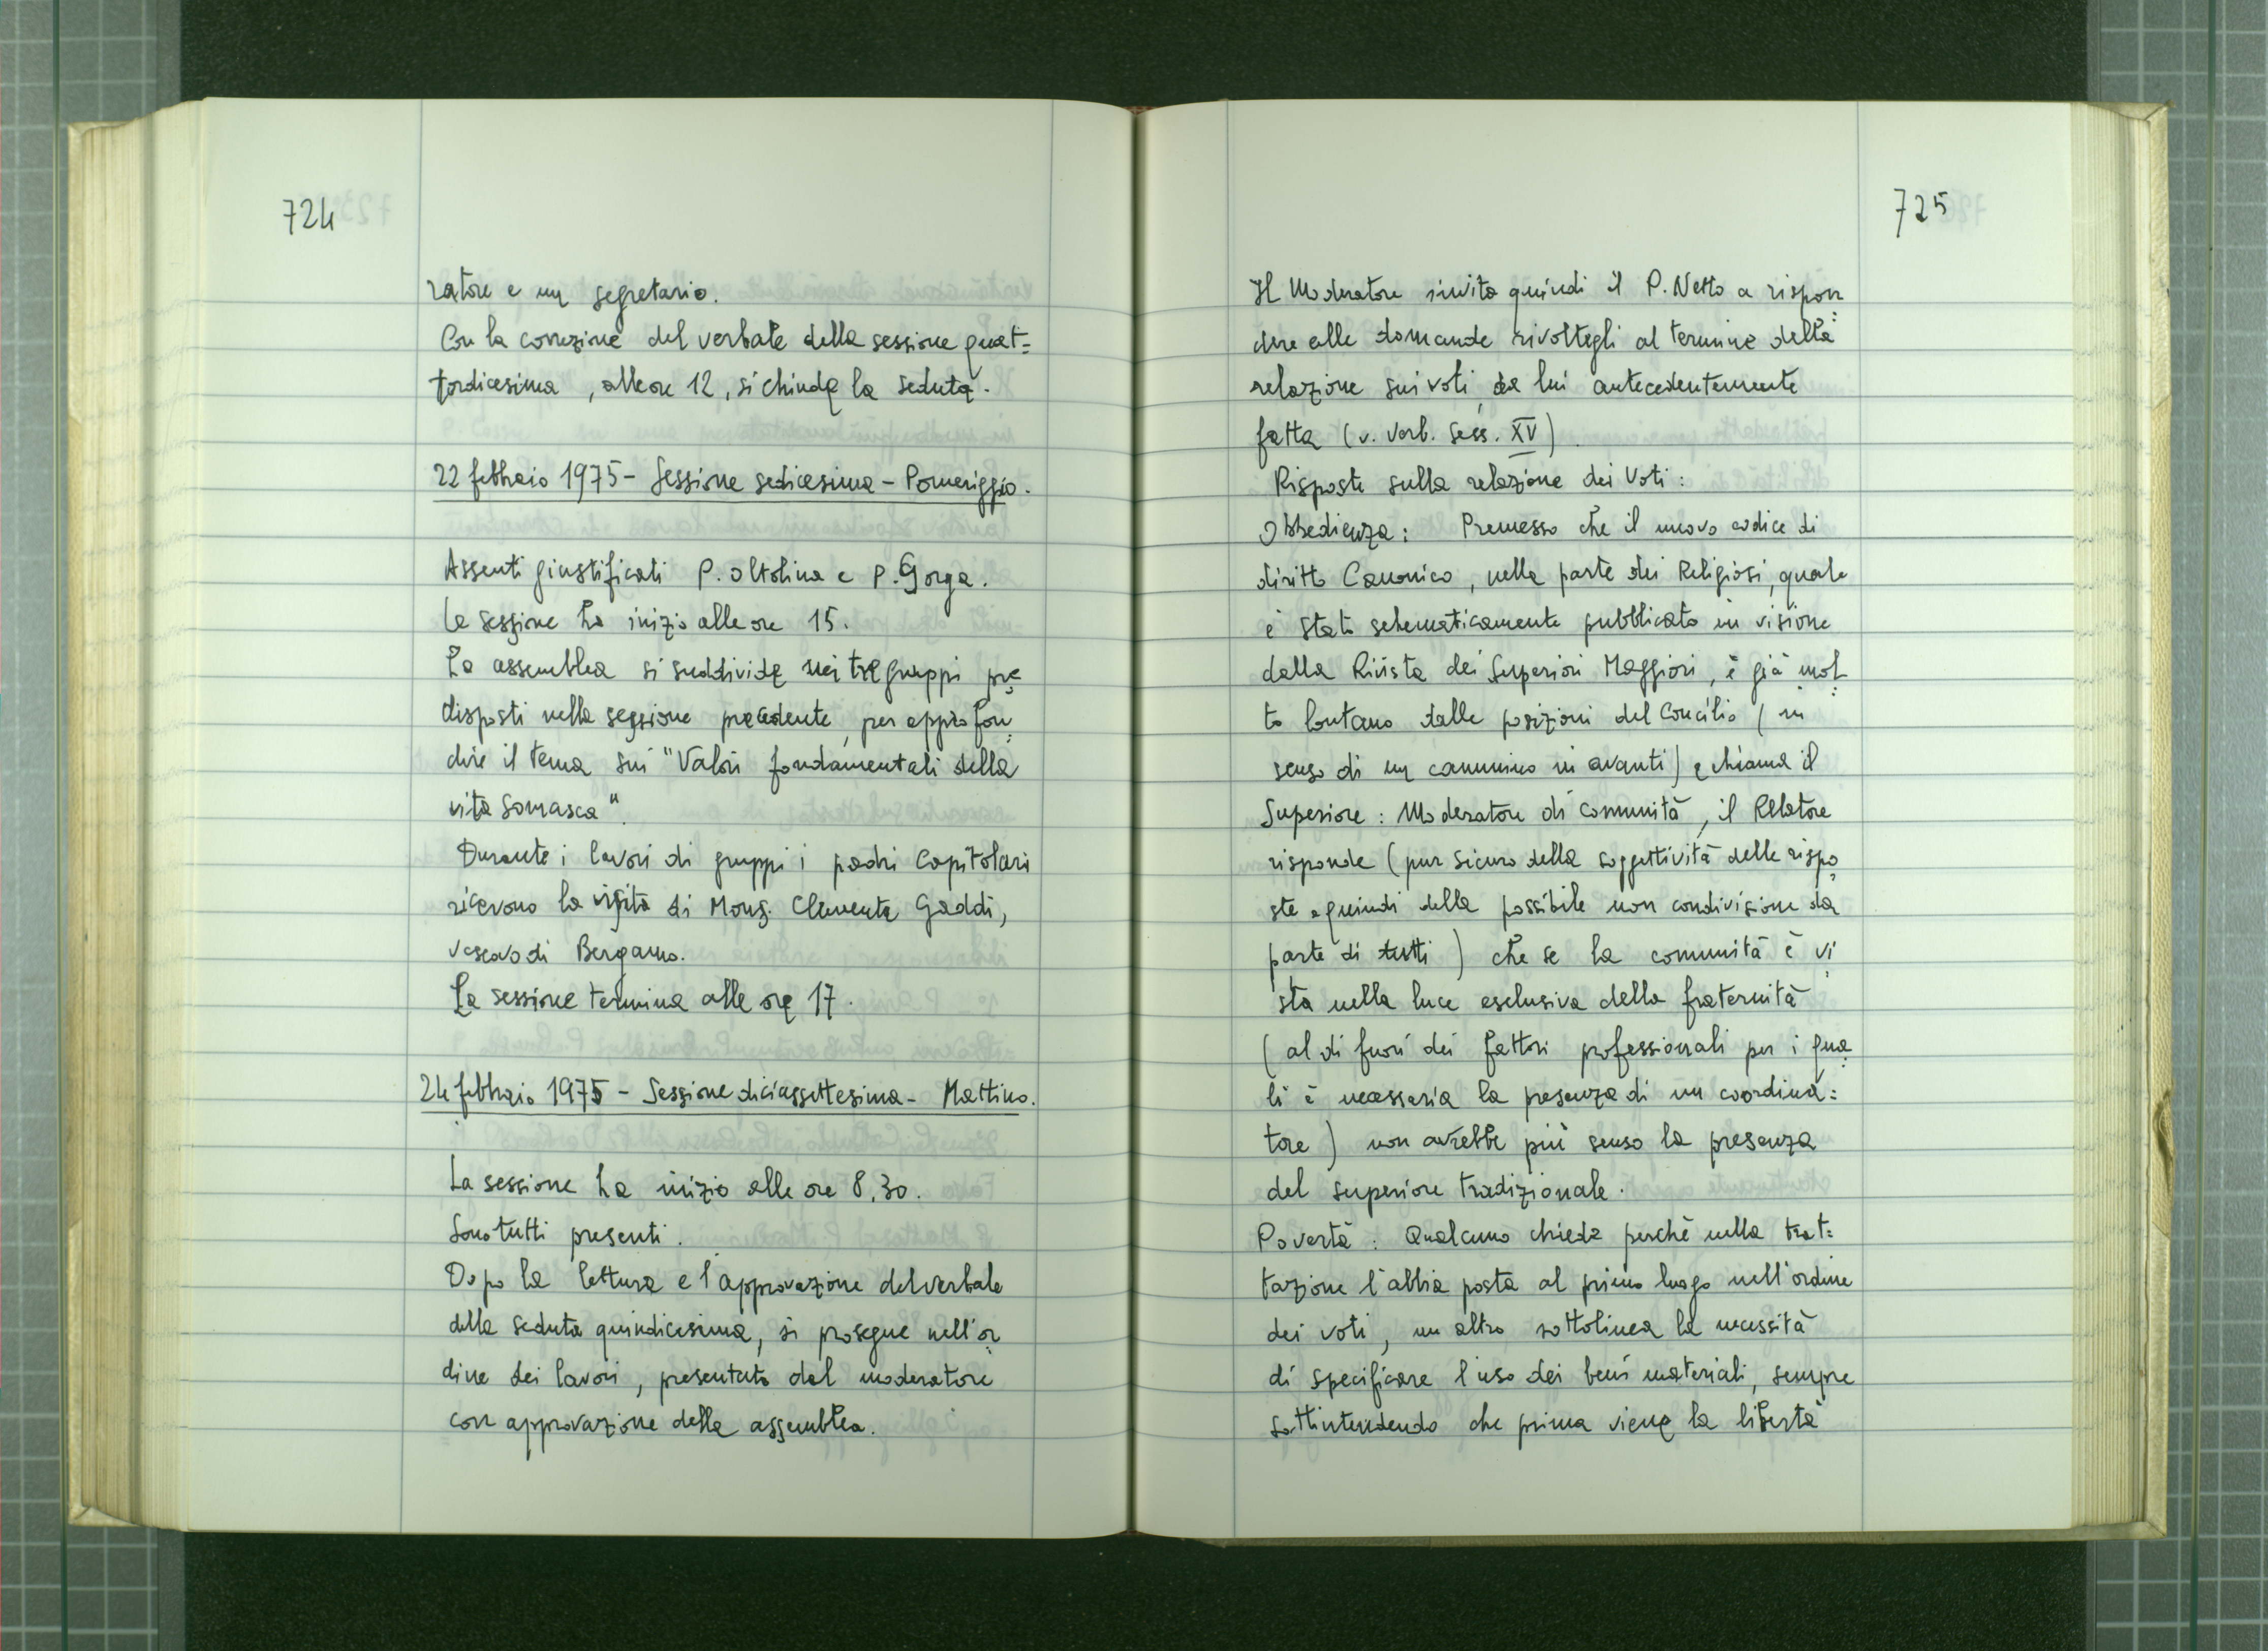 724
ratore e un segretario.
Con la correzione del verbale della sessione quat=
tordicesima, alle ore 12, si chiude la seduta.
22 febbraio 1975 - Sessione sedicesima - Pomeriggio.
Assenti giustificati P. Oltolina e P. Gorga.
La sessione ha inizio alle ore 15.
La assemblea si suddivide nei tre gruppi pre=
disposti nella sessione precedente, per approfon=
dire il tema sui "Valori fondamentali della
vita Somasca".
Durante i lavori di gruppi i padri Capitolari
ricevono la visita di Mons. Clemente Gaddi,
vescovo di Bergamo.
La sessione termina alle ore 17.
24 febbraio 1975 - Sessione diciassettesima - Mattino.
La sessione ha inizio alle ore 8,30.
Sono tutti presenti.
Dopo la lettura e l'approvazione del verbale
della seduta quindicesima, si prosegue nell'or=
dine dei lavori, presentato dal moderatore
con approvazione della assemblea.
725
Il Moderatore invita quindi il P. Netto a rispon=
dere alle domande rivoltegli al termine della
relazione sui voti, da lui antecedentemente
fatta (v. Verb. Sess. XV).
Risposte sulla relazione dei Voti:
Obbedienza: Premesso che il nuovo codice di
diritto Canonico, nella parte dei Religiosi, quale
è stato schematicamente pubblicato in visione
dalla Rivista dei Superiori Maggiori, è già mol=
to lontano dalle posizioni del Concilio (in
senso di un cammino in avanti) e chiama il
Superiore: Moderatore di Comunità, il Relatore
risponde (pur sicuro della soggettività delle rispo=
ste e quindi della possibile non condivisione da
parte di tutti) che se la comunità è vi=
sta nella luce esclusiva della fraternità
(al di fuori dei fattori professionali per i qua=
li è necessaria la presenza di un coordina=
tore) non avrebbe più senso la presenza
del superiore tradizionale.
Povertà: Qualcuno chiede perchè nella trat=
tazione l'abbia posta al primo luogo nell'ordine
dei voti, un altro sottolinea la necessità
di specificare l'uso dei beni materiali, sempre
sottintendendo che prima viene la libertà